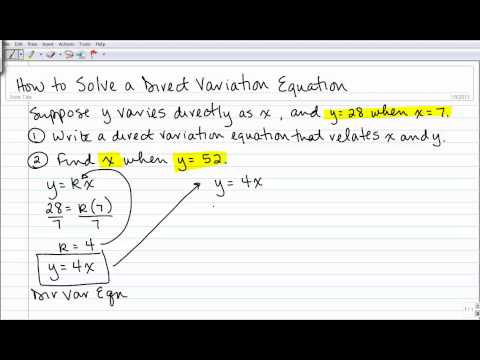 File Edit View Insert Actions Tools Help
How to Solve a Direct Variation Equation
Suppose y varies directly as x, and y = 28 when x = 7.
① Write a direct variation equation that relates x and y.
② Find x when y = 52.
y = kx
28 = k(7)
7 7
k = 4
y = 4x
Dir Var Eqn
y = 4x